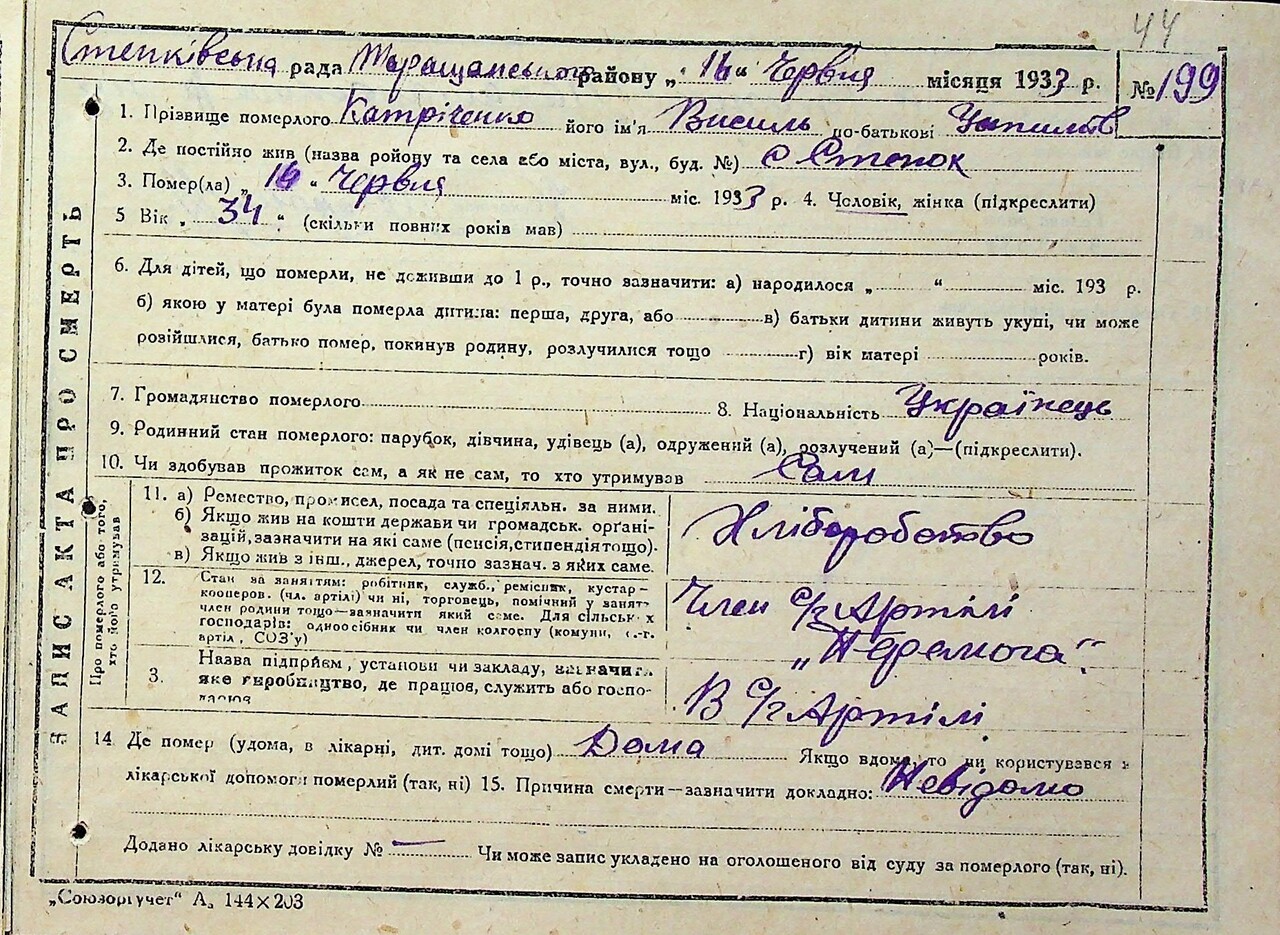 44
Степківська рада Таращанського району „16“ Червня місяця 1933 р. №199
1. Прізвище померлого Катріченко його ім'я Василь по-батькові
2. Де постійно жив (назва ройону та села або міста, вул., буд. №) с Степок
3. Помер(ла) „16“ Червня міс. 1933 р. 4. Чєловік, жінка (підкреслити)
5 Вік „34“ (скільки повних років мав)
6. Для дітей, що померли, не доживши до 1 р., точно зазначити: а) народилося „ “ міс. 193 р.
б) якою у матері була померла дитина: перша, друга, або в) батьки дитини живуть укупі, чи може
розійшлися, батько помер, покинув родину, розлучилися тощо г) вік матері років.
7. Громадянство померлого 8. Національність Українець
9. Родинний стан померлого: парубок, дівчина, удівець (а), одружений (а), розлучений (а)—(підкреслити).
10. Чи здобував прожиток сам, а як не сам, то хто утримував Сам
ЗАПИС АКТА ПРО СМЕРТЬ
Про померлого або того,
хто його утримував
11. а) Ремество, промисел, посада та спеціяльн. за ними.
б) Якщо жив на кошти держави чи громадськ. орґані-
зацій, зазначити на які саме (пенсія, стипендія тощо).
в) Якщо жив з інш., джерел, точно зазнач. з яких саме.
Хліборобство
12. Стан за заняттям: робітник, служб., ремісник, кустар-
кооперов. (чл. артілі) чи ні, торговець, помічний у занят-
член родини тощо—зазначити який саме. Для сільськ х
господарів: одноосібник чи член колгоспу (комуни, с.-г.
артіл, СОЗ'у)
Член С/г Артілі
„Перемога“
3. Назва підприєм, установи чи закладу, зазначить
яке виробництво, де працює, служить або госпо-
дарює
В С/г Артілі
14. Де помер (удома, в лікарні, дит. домі тощо) Дома Якщо вдома, то чи користувався з
лікарської допомоги померлий (так, ні) 15. Причина смерти—зазначити докладно: Невідомо
Додано лікарську довідку № — Чи може запис укладено на оголошеного від суду за померлого (так, ні).
„Союзоргучет“ А₅ 144×203